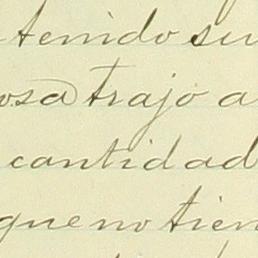 tenido su
osa trajo a
cantidad
que no tien